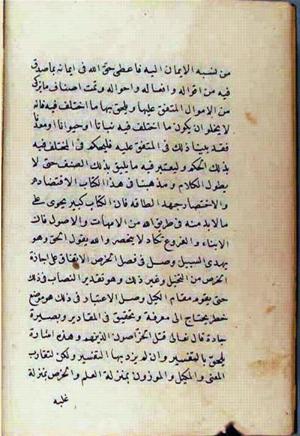 من نسبة الايمان اليه فاعطى حق الله في ايمانه بما صدق
فيه من اقواله وافعاله واحواله وتمت اصناف ما يزكى
من الاموال المتفق عليها ويلحق بها ما اختلف فيه فانه
لا يخلوا ان يكون ما اختلف فيه نباتا او حيوانا او معدنا
فقد بينا ذلك في المتفق عليه فليحكم في المختلف فيه
بذلك الحكم وليعتبر فيه ما يليق بذلك الصنف حتى لا
يطول الكلام ومذهبنا في هذا الكتاب الاقتصاد
والاختصار جهد الطاقة فان الكتاب كبير يحوى على
ما لا بد منه في طريق الله من الامهات والاصول فان
الابناء والفروع تكاد لا تنحصر والله يقول الحق وهو
يهدى السبيل وصل في فصل الخرص الاتفاق على اجازة
الخرص من النخيل وغير ذلك وهو تقدير النصاب في ذلك
حتى يقوم مقام الكيل وصل الاعتبار في ذلك هو موضع
خطر يحتاج الى معرفة وتحقيق في المقادير وبصيرة
حادة قال تعالى قتل الخراصون الذين هم وهذه اشارة
يلحق بالتفسير وان لم يرد بها التفسير ولكن لتقارب
المعنى والمكيل والموزون بمنزلة العلم والخرص بمنزلة
غلبة